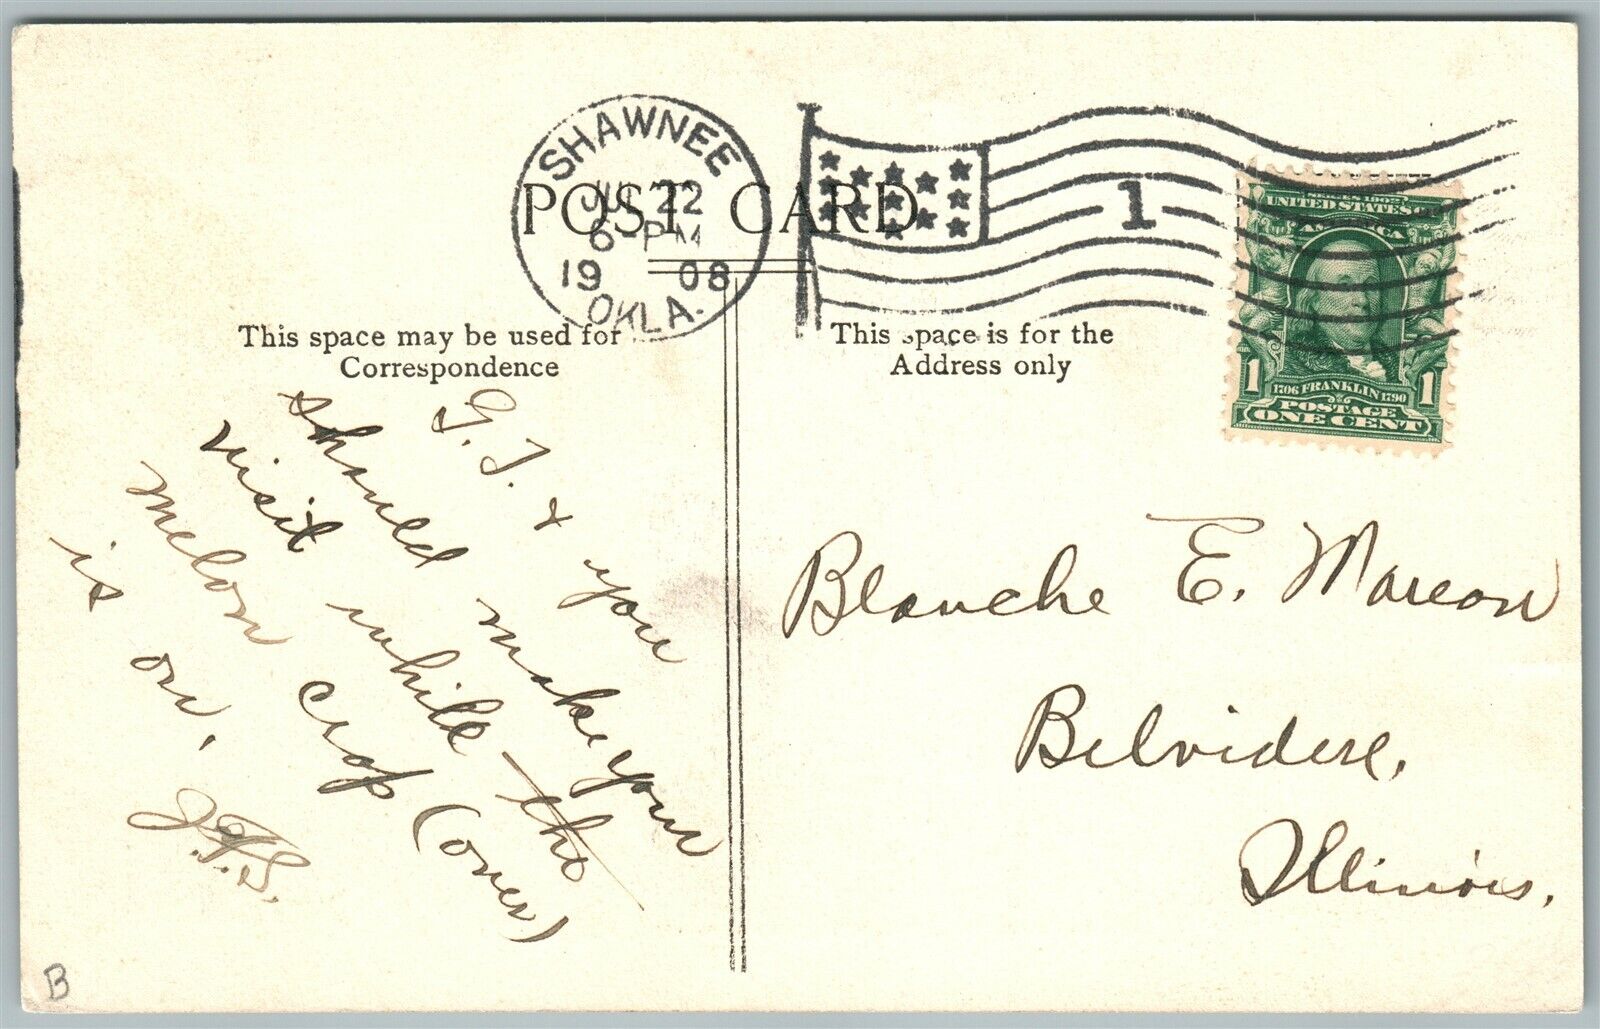 SHAWNEE
JUL 22
6-PM
1908
OKLA.
1
POST CARD
This space may be used for
Correspondence
This space is for the
Address only
UNITED STATES OF
AMERICA
1 1706 FRANKLIN 1790 1
POSTAGE
ONE CENT
G. T. & you
should make your
visit while the
melon crop (over)
is on.
Blanche E. Marean
Belvidere,
Illinois.
B